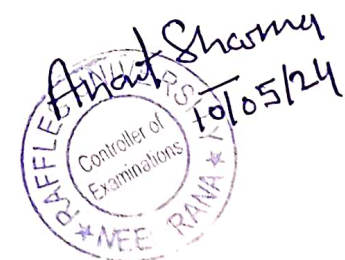 Anant Sharma
10/05/24
RAFFLES UNIVERSITY
Controller of
Examinations
★ NEEMRANA ★